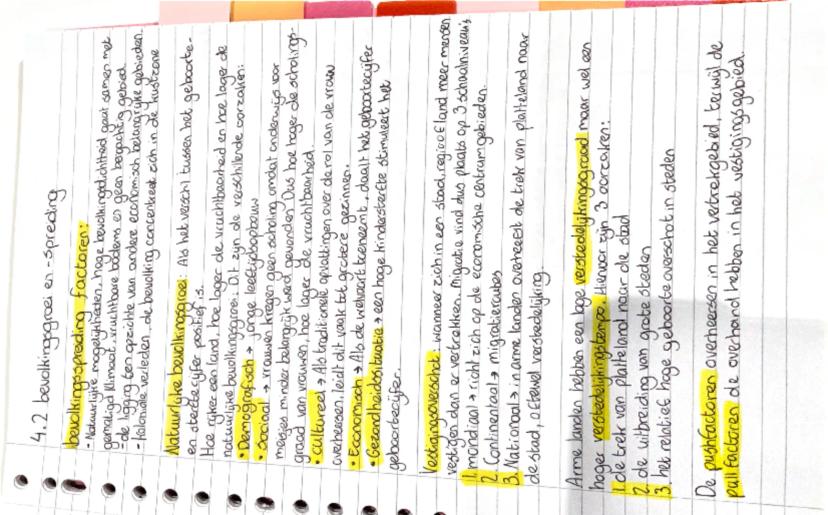 4.2 bevolkingsgroei en -spreiding
bevolkingsspreiding factoren:
- Natuurlijke mogelijkheden, hoge bevolkingsdichtheid gaat samen met
gematigd klimaat, vruchtbare bodems en geen bergachtig gebied.
- de ligging ten opzichte van andere economisch belangrijke gebieden.
- koloniale verleden, de bevolking concentreert zich in de kustzone
Natuurlijke bevolkingsgroei: Als het verschil tussen het geboorte-
en sterftecijfer positief is.
Hoe rijker een land, hoe lager de vruchtbaarheid en hoe lager de
natuurlijke bevolkingsgroei. Dit zijn de verschillende oorzaken:
• Demografisch → jonge leeftijdsopbouw
• Sociaal → vrouwen kregen geen scholing omdat onderwijs voor
meisjes minder belangrijk werd gevonden. Dus hoe hoger de scholings-
graad van vrouwen, hoe lager de vruchtbaarheid.
• cultureel → Als traditionele opvattingen over de rol van de vrouw
overheersen, leidt dit vaak tot grotere gezinnen.
• Economisch → Als de welvaart toeneemt, daalt het geboortecijfer
• Gezondheidssituatie → een hoge kindersterfte stimuleert het
geboortecijfer.
Vestigingsoverschot: wanneer zich in een stad, regio of land meer mensen
vestigen dan er vertrekken. Migratie vind dus plaats op 3 schaalniveau's
1. mondiaal → richt zich op de economische centrumgebieden.
2. Continentaal → migratieroutes
3. Nationaal → in arme landen overheerst de trek van platteland naar
de stad, oftewel verstedelijking.
Arme landen hebben een lage verstedelijkingsgraad maar wel een
hoger verstedelijkingstempo. Hiervoor zijn 3 oorzaken:
1. de trek van platteland naar de stad
2. de uitbreiding van grote steden
3. het relatief hoge geboorte overschot in steden
De pushfactoren overheersen in het vertrekgebied, terwijl de
pull factoren de overhand hebben in het vestigingsgebied.